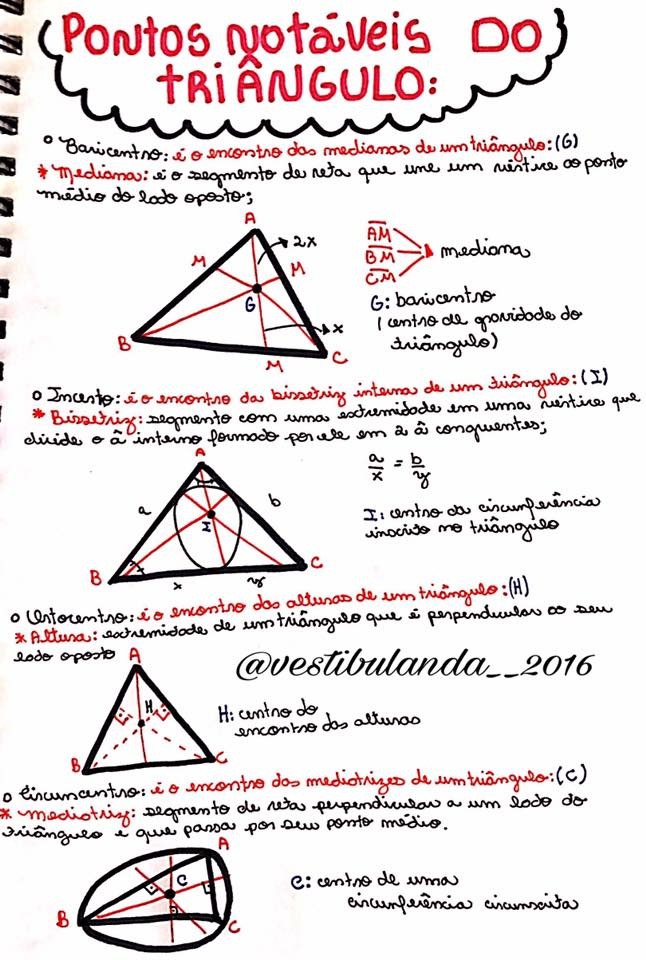 PONTOS NOTÁVEIS DO
TRIÂNGULO:
Baricentro: é o encontro das medianas de um triângulo: (G)
* Mediana: é o segmento de reta que une um vértice ao ponto
médio do lado oposto;
A
2x
M
M
G
B
x
C
M
AM
BM
CM
mediana
G: baricentro
(centro de gravidade do
triângulo)
Incento: é o encontro da bissetriz interna de um triângulo: (I)
* Bissetriz: segmento com uma extremidade em uma vértice que
divide o â interno formado por ele em 2 â congruentes;
A
a
b
I
B
C
x
y
a/x = b/y
I: centro da circunferência
inscrito no triângulo
Ortocentro: é o encontro das alturas de um triângulo: (H)
* Altura: extremidade de um triângulo que é perpendicular ao seu
lado oposto
@vestibulanda__2016
A
H
B
C
H: centro do
encontro das alturas
Circuncentro: é o encontro das mediatrizes de um triângulo: (C)
* Mediatriz: segmento de reta perpendicular a um lado do
triângulo e que passa por seu ponto médio.
A
C
B
C
C: centro de uma
circunferência circunscrita